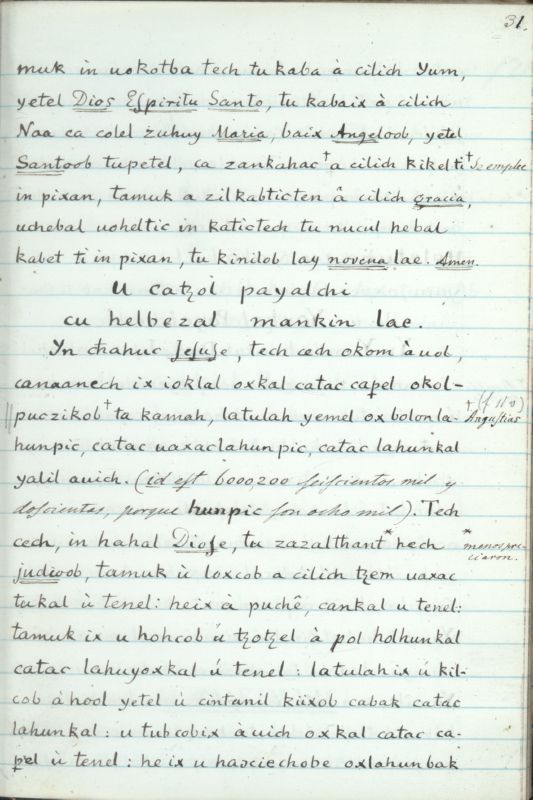 31.
muk in uokotba tech tu kaba à cilich Yum,
yetel Dios Espiritu Santo, tu kabaix à cilich
Naa ca colel zuhuy Maria, baix Angeloob, yetel
Santoob tupetel, ca zankahac † a cilich kikel ti † Se emplee
in pixan, tamuk a zilkabticten â cilich gracia,
uchebal uoheltic in katictech tu nucul hebal
kabet ti in pixan, tu kinilob lay novena lae. Amen.
U catzol payalchi
cu helbezal mankin lae.
Yn chahuc Jesuse, tech cech okom à uol,
canaanech ix ioklal oxkal catac capel okol-
puczikob † ta kamah, latulah yemel ox bolonla- † (f. sl. v) Angustias
hunpic, catac uaxaclahunpic, catac lahunkal
yalil auich. (id est 6000,200 seiscientos mil y
doscientas, porque hunpic son ocho mil). Tech
cech, in hahal Diose, tu zazalthant * hech * menospre-
ciaron.
judioob, tamuk ù loxcob a cilich tzem uaxac
tukal ù tenel: heix à puchê, cankal u tenel:
tamuk ix u hohcob ú tzotzel à pol holhunkal
catac lahuyoxkal ú tenel: latulah ix ú kil-
cob à hool yetel ù cintanil kiixob cabak catac
lahunkal: u tubcobix àuich oxkal catac ca-
pel ù tenel: he ix u haɔciechobe oxlahunbak